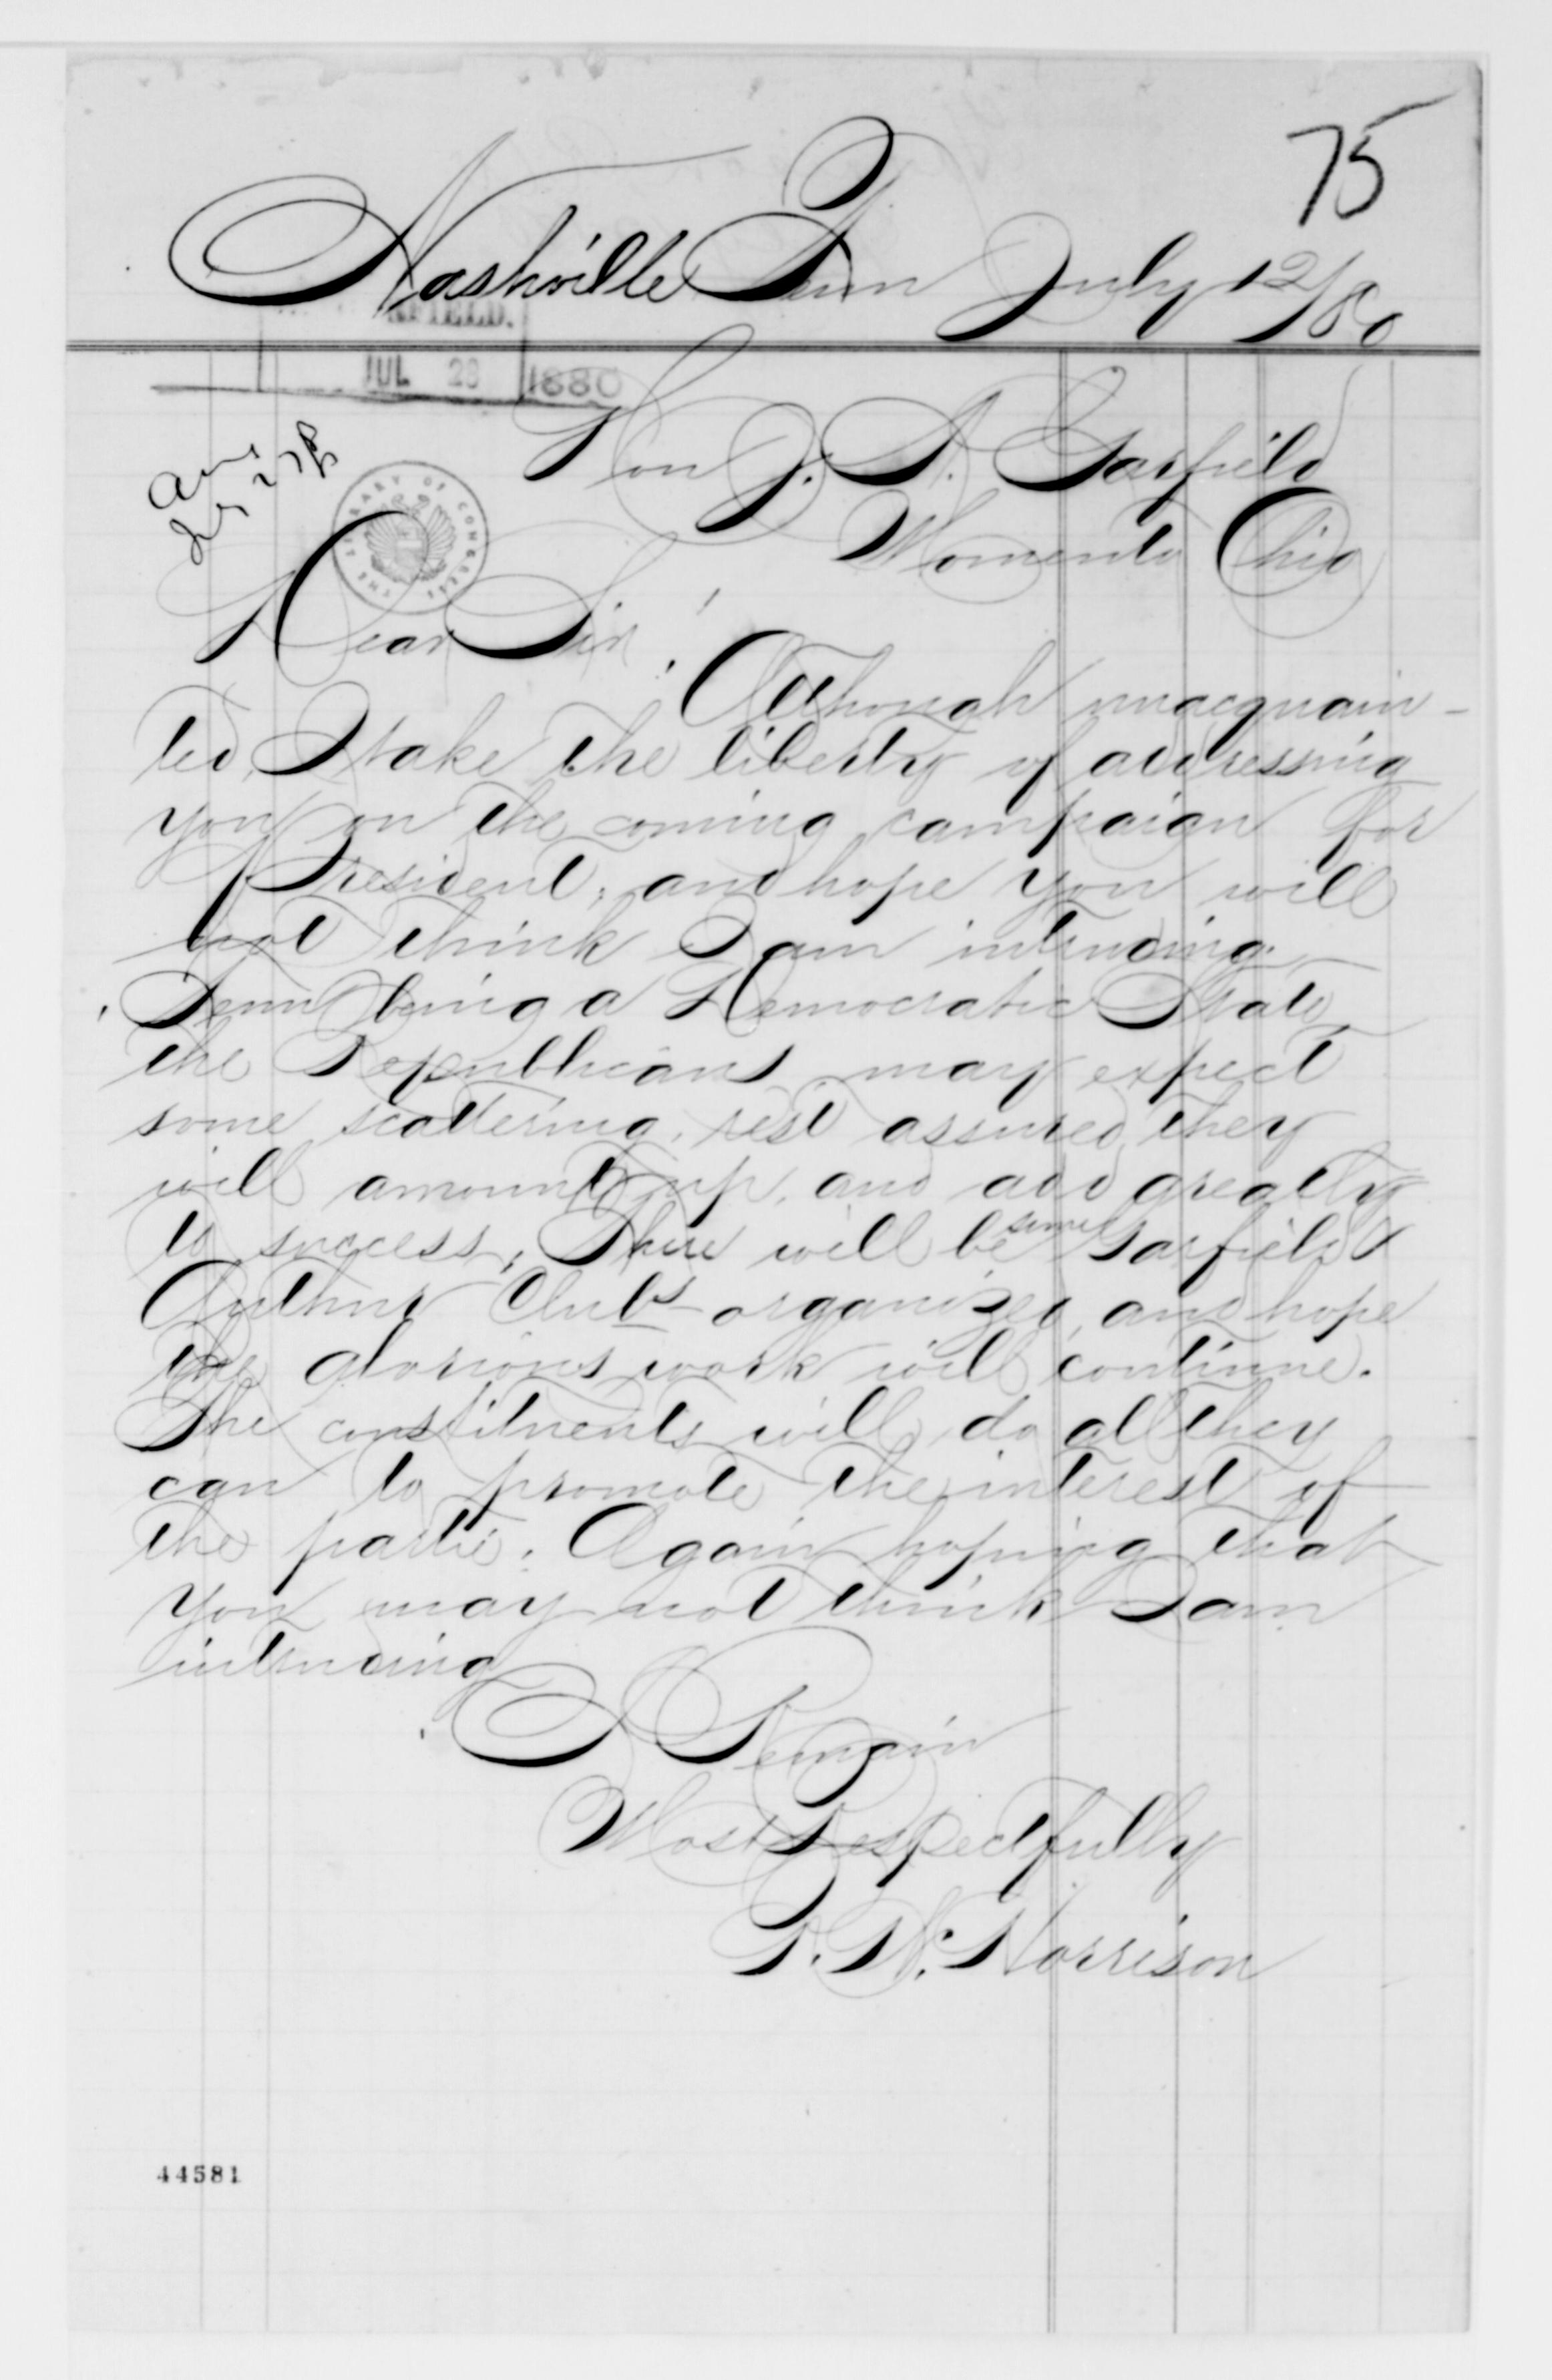 75
Nashville Tenn July 12/80
RFIELD.
JUL 28 1880
Hon J. A. Garfield
Momento Ohio
THE LIBRARY OF CONGRESS
Dear Sir!
Although unacquain-
ted, I take the liberty of addressing
you on the coming campaign for
President, and hope you will
not think I am intruding.
Tenn being a Democratic State,
the Republicans may expect
some scattering, rest assured they
will amount up, and add greatly
to success, There will be some Garfield &
Authur Clubs organized, and hope
the glorious work will continue.
The constituents will do all they
can to promote the interest of
the partie. Again hoping that
you may not think I am
intruding
I Remain
Most Respectfully
Morrison
44581